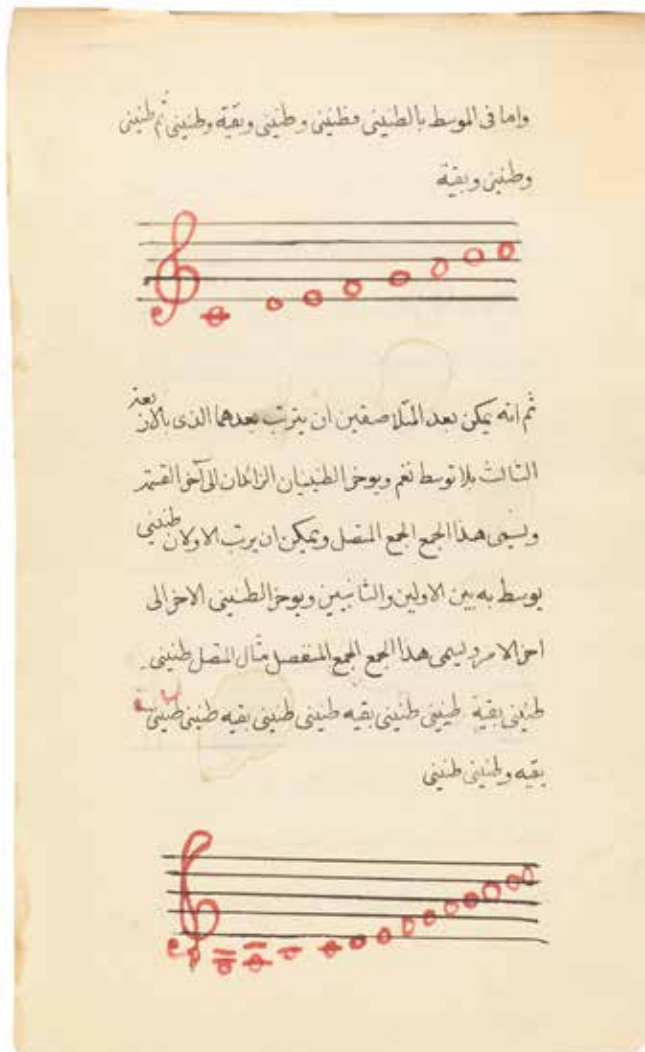 واما فى الموسط بالطنينى فطنينى وطنينى وبقية وطنينى ثم طنينى
وطنينى وبقية
ثم انه يمكن بعد المتلاصقين ان يترتب بعدهما الذى بالاربعة
الثالث بلا توسط نغم ويوخر الطنينيان الزائدان الى آخر القسم
ويسمى هذا الجمع الجمع المتصل ويمكن ان يرتب الاولان طنينى
يوسط به بين الاولين والثانيين ويوخر الطنينى الاخر الى
اخر الامر ويسمى هذا الجمع الجمع المنفصل مثال المتصل طنينى
طنينى بقية طنينى طنينى بقيه طنينى طنينى بقيه طنينى طنينى
بقيه وطنينى طنينى